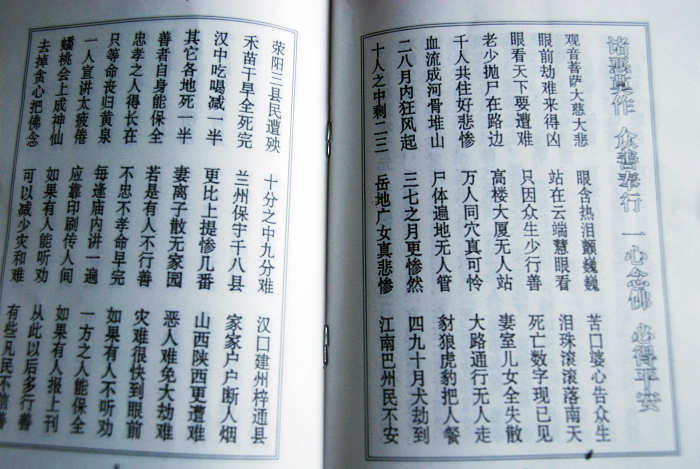 诸恶莫作 众善奉行 一心念佛 必得平安
观音菩萨大慈大悲 眼含热泪颤巍巍 苦口婆心告众生
眼前劫难来得凶 站在云端慧眼看 泪珠滚滚落南天
眼看天下要遭难 只因众生少行善 死亡数字现已见
老少抛尸在路边 高楼大厦无人站 妻室儿女全失散
千人共住好悲惨 万人同穴真可怜 大路通行无人走
血流成河骨堆山 尸体遍地无人管 豺狼虎豹把人餐
二八月内狂风起 三七之月更惨然 四九十月犬劫到
十人之中剩二三 岳地广女真悲惨 江南巴州民不安
荥阳三县民遭殃 十分之中九分难 汉口建州梓通县
禾苗干旱全死完 兰州保宁千八县 家家户户断人烟
汉中吃喝减一半 更比上提惨几番 山西陕西更遭难
其它各地死一半 妻离子散无家园 恶人难免大劫难
善者自身能保全 若是有人不行善 灾难很快到眼前
忠孝之人得长在 不忠不孝命早完 如果有人不听劝
只等命丧归黄泉 每逢庙内讲一遍 一方之人能保全
一人宣讲太疲倦 应靠印刷传人间 如果有人报上刊
蟠桃会上成神仙 如果有人能听劝 从此以后多行善
去掉贪心把佛念 可以减少灾和难 有些凡民不